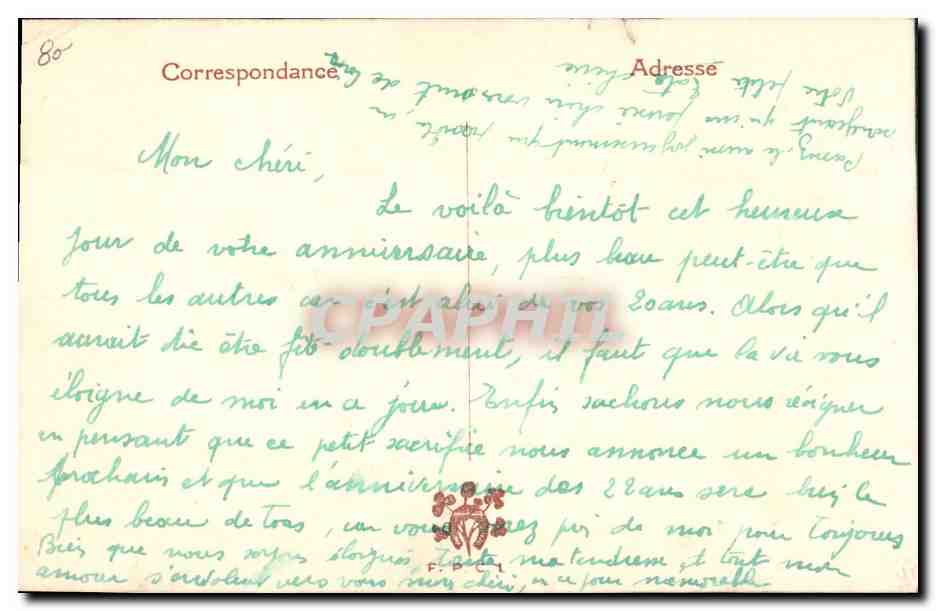 80
Correspondance
Adresse
Mon chéri,
Le voilà bientôt cet heureux
jour de votre anniversaire, plus beau peut-être que
tous les autres car c'est celui de vos 20 ans. Alors qu'il
aurait dû être fêté doublement, il faut que la vie vous
éloigne de moi en ce jour. Enfin sachons nous résigner
en pensant que ce petit sacrifice nous annonce un bonheur
prochain et que l'anniversaire des 22 ans sera bien le
plus beau de tous, car vous serez près de moi pour toujours
Bien que nous soyons éloignés, toute ma tendresse et tout mon
amour s'envolent vers vous mon chéri, en ce jour mémorable
Passez-le aussi joyeusement que possible, en
songeant qu'une pensée chère vous suit de loin
Votre petite chérie
CPAPHIL
F.P.C.I.